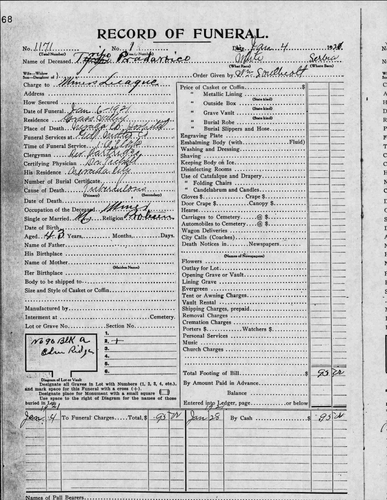 68
RECORD OF FUNERAL.
1171 No. 1 Date Jan 4 1921
(Total Number) (Yearly Number)
Name of Deceased White Serbia
(What Race) (Where Born)
Wife—Widow
Son—Daughter of Order Given by
Charge to Miners League
Address
How Secured
Date of Funeral Jan 6-1921
Place of Death Hospital
Funeral Services at
Time of Funeral Service
Clergyman Rev.
Certifying Physician
His Residence Nevada City
Number of Burial Certificate
Cause of Death Tuberculosis
(Primary) (Secondary)
Date of Death
Occupation of the Deceased Miner
Single or Married Religion
Date of Birth
Aged 43 Years, Months, Days.
Name of Father
His Birthplace
Name of Mother
(Maiden Name)
Her Birthplace
Body to be shipped to
Size and Style of Casket or Coffin
Manufactured by
Interment at Cemetery.
Lot or Grave No. Section No.
No 90 Blk a
Glen Ridge
1.
2.
3.
4.
5.
6.
Diagram of Lot or Vault
Designate all Graves in Lot with Numbers (1, 2, 3, 4, etc.), and mark space for this Funeral with a cross (+).
Designate place for Monument with a small square
Use space to the right of Diagram for the names of those buried in Lot.
Price of Casket or Coffin
" Metallic Lining
(State kind)
" Outside Box
(State kind)
" Grave Vault
(State kind)
" Burial Robe
(State kind)
" Burial Slippers and Hose
Engraving Plate
Embalming Body (with Fluid)
Washing and Dressing
Shaving
Keeping Body on Ice
Disinfecting Rooms
Use of Catafalque and Drapery
" Folding Chairs
" Candelabrum and Candles
Gloves $ Crape $
Door Crape $ Canopy $
Hearse
Carriages to Cemetery @ $
Automobiles to Cemetery @ $
Wagon Deliveries
City Calls (Coaches)
Death Notices in Newspapers
Flowers
Outlay for Lot
Opening Grave or Vault
Lining Grave
Evergreen
Tent or Awning Charges
Vault Rental
Shipping Charges, prepaid
Removal Charges
Cremation Charges
Porters $ Watchers $
Personal Services
Music
Church Charges
Total Footing of Bill $ 95
By Amount Paid in Advance
Balance
Entered into Ledger, page or below.
1921
Jan 4 To Funeral Charges Total, $ 95
Jan 28 By Cash $ 95
Names of Pall Bearers